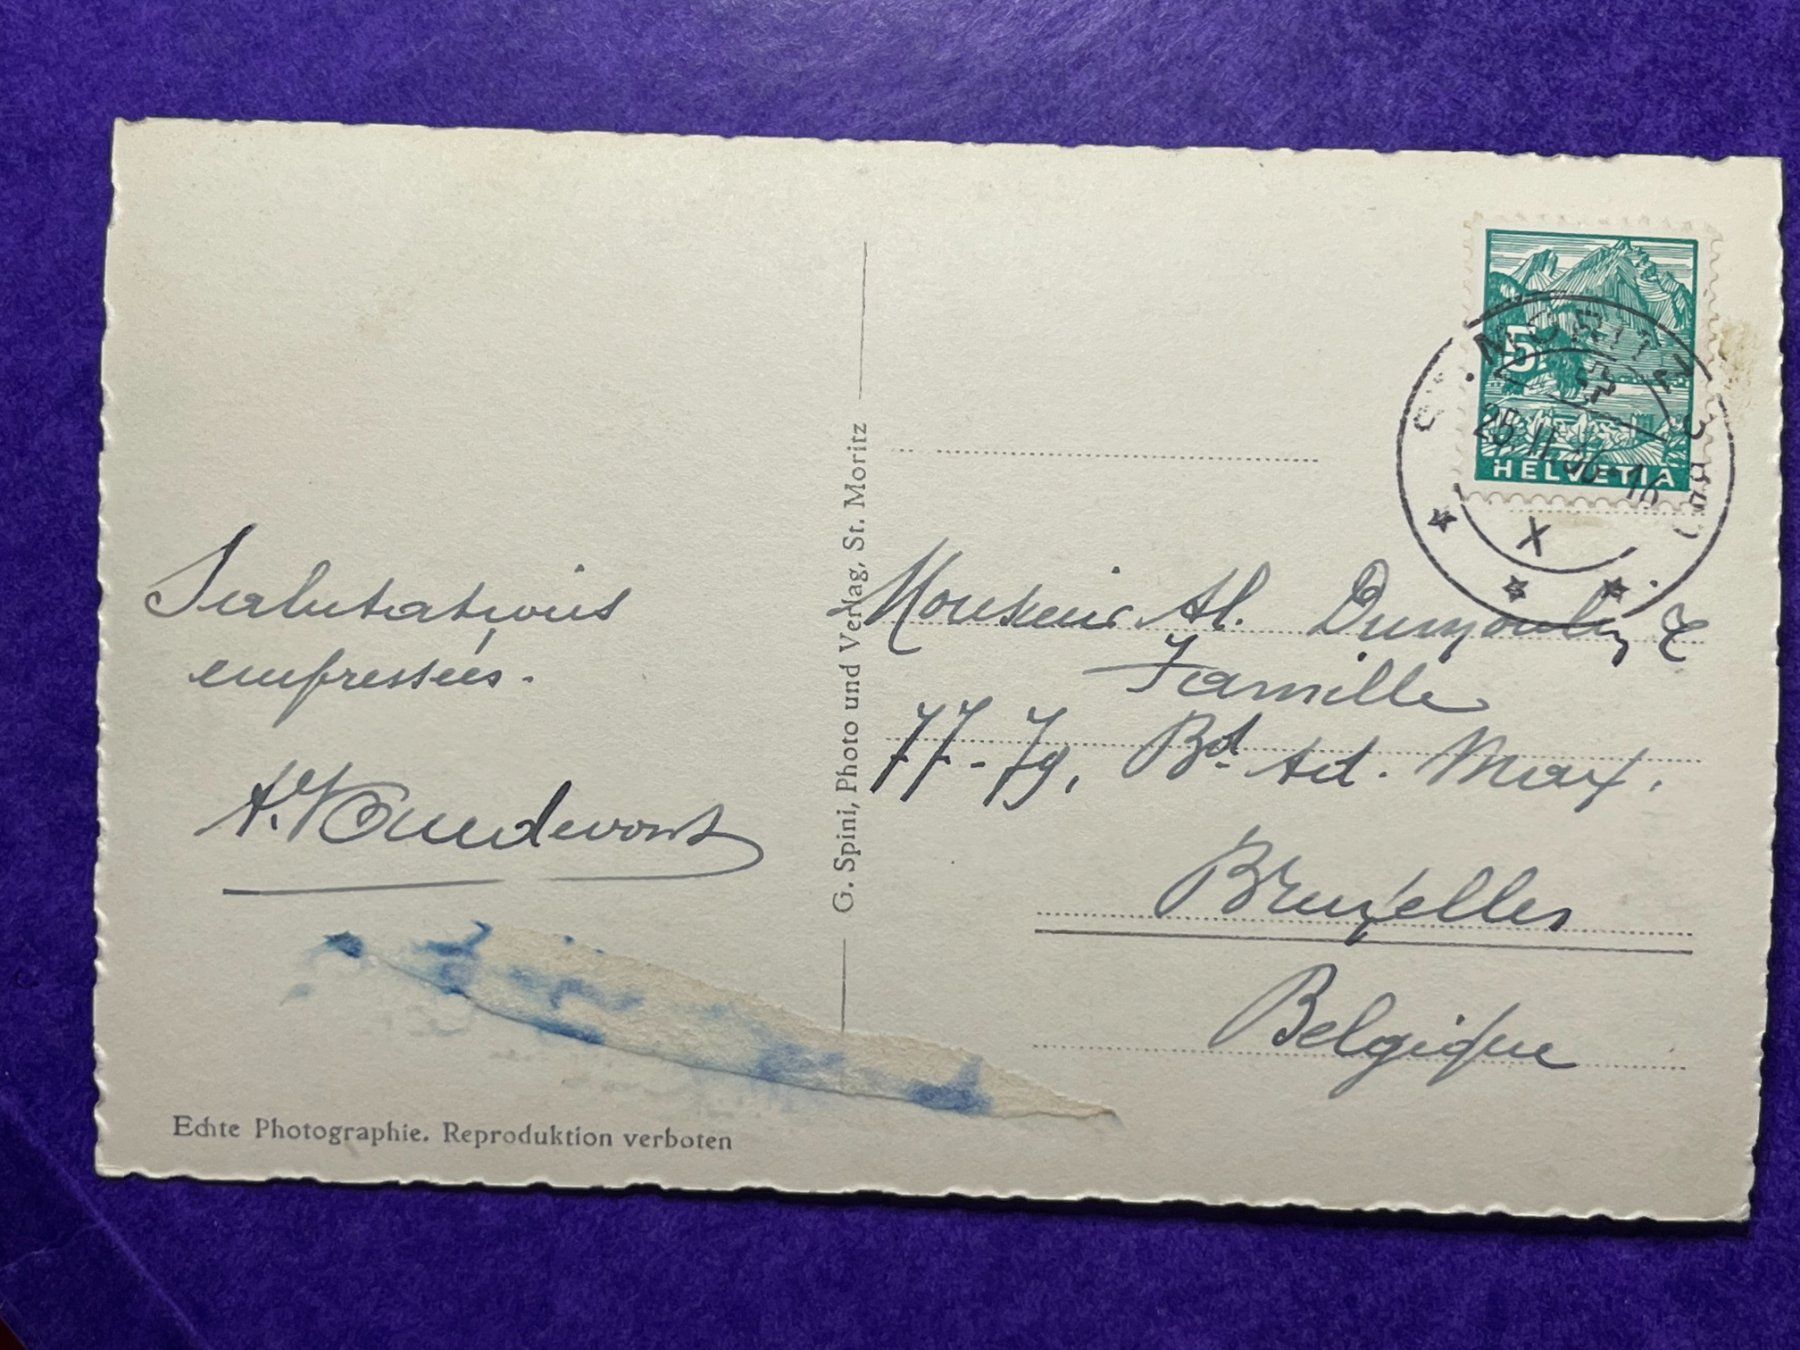 Salutations
empressées.
G. Spini, Photo und Verlag, St. Moritz
Echte Photographie. Reproduktion verboten
5
HELVETIA
MORITZ
25.II.36-16
X
Monsieur Al. Dumoulin &
Famille
77-79, Bd Ad. Max.
Bruxelles
Belgique